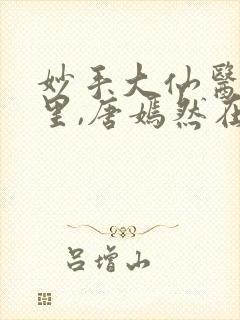 妙手大仙醫
里,唐嫣然在
吕增山